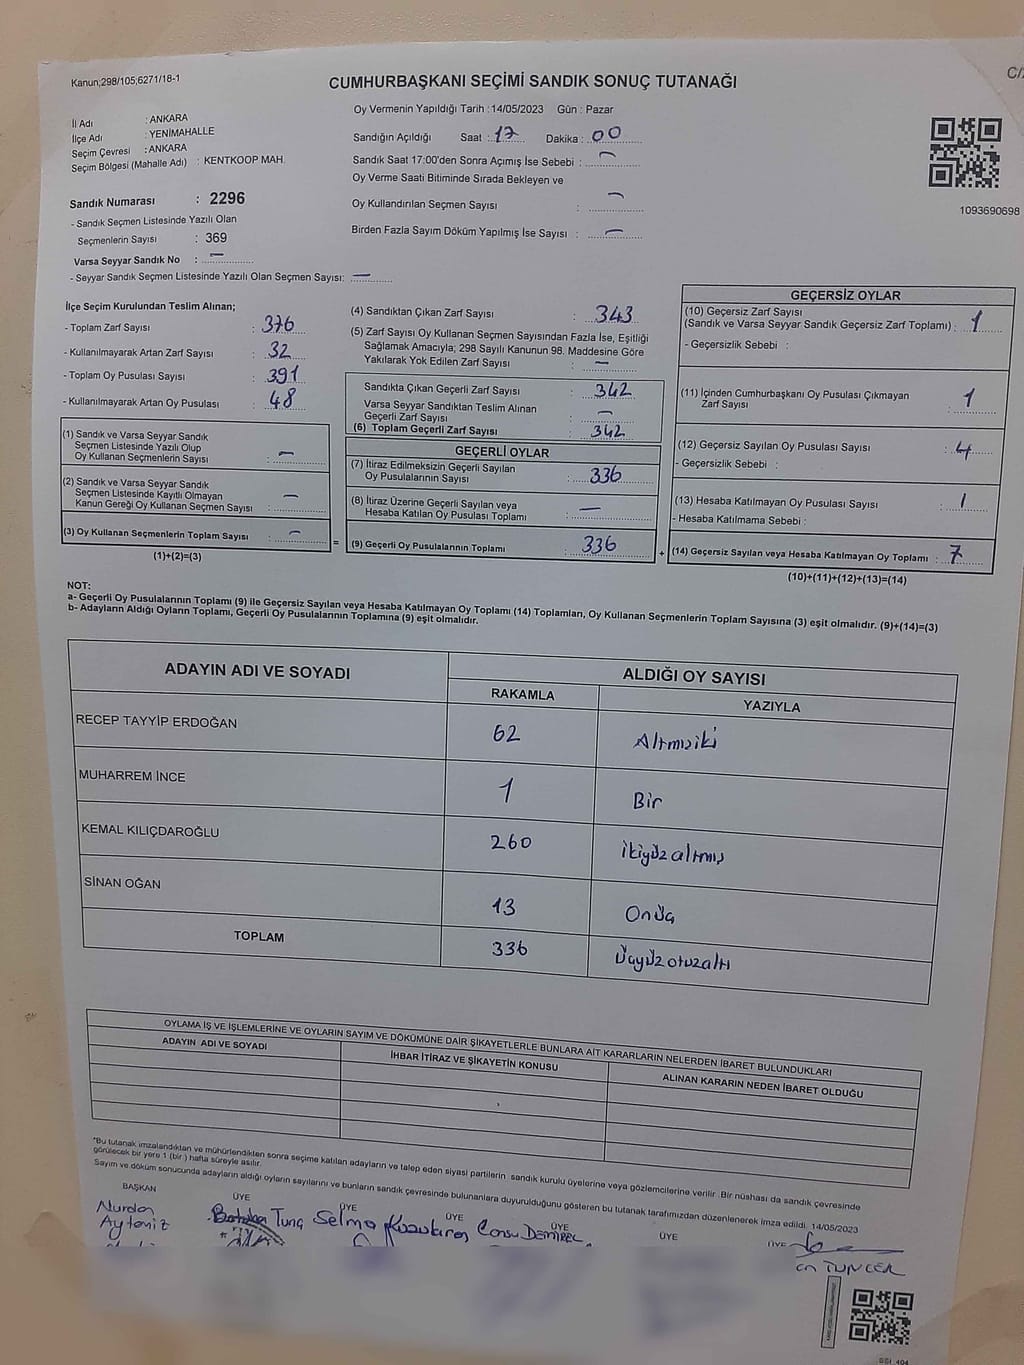 Kanun;298/105;6271/18-1
CUMHURBAŞKANI SEÇİMİ SANDIK SONUÇ TUTANAĞI
C/2
İl Adı : ANKARA
İlçe Adı : YENİMAHALLE
Seçim Çevresi : ANKARA
Seçim Bölgesi (Mahalle Adı) : KENTKOOP MAH.
Sandık Numarası : 2296
- Sandık Seçmen Listesinde Yazılı Olan
Seçmenlerin Sayısı : 369
Varsa Seyyar Sandık No : —
- Seyyar Sandık Seçmen Listesinde Yazılı Olan Seçmen Sayısı: —
Oy Vermenin Yapıldığı Tarih :14/05/2023 Gün : Pazar
Sandığın Açıldığı Saat : 17 Dakika : 00
Sandık Saat 17:00'den Sonra Açımış İse Sebebi : —
Oy Verme Saati Bitiminde Sırada Bekleyen ve
Oy Kullandırılan Seçmen Sayısı : —
Birden Fazla Sayım Döküm Yapılmış İse Sayısı : —
1093690698
İlçe Seçim Kurulundan Teslim Alınan;
- Toplam Zarf Sayısı : 376
- Kullanılmayarak Artan Zarf Sayısı : 32
- Toplam Oy Pusulası Sayısı : 391
- Kullanılmayarak Artan Oy Pusulası : 48
(1) Sandık ve Varsa Seyyar Sandık
Seçmen Listesinde Yazılı Olup
Oy Kullanan Seçmenlerin Sayısı : —
(2) Sandık ve Varsa Seyyar Sandık
Seçmen Listesinde Kayıtlı Olmayan
Kanun Gereği Oy Kullanan Seçmen Sayısı : —
(3) Oy Kullanan Seçmenlerin Toplam Sayısı : —
(1)+(2)=(3)
(4) Sandıktan Çıkan Zarf Sayısı : 343
(5) Zarf Sayısı Oy Kullanan Seçmen Sayısından Fazla İse, Eşitliği
Sağlamak Amacıyla; 298 Sayılı Kanunun 98. Maddesine Göre
Yakılarak Yok Edilen Zarf Sayısı : —
Sandıkta Çıkan Geçerli Zarf Sayısı : 342
Varsa Seyyar Sandıktan Teslim Alınan
Geçerli Zarf Sayısı : —
(6) Toplam Geçerli Zarf Sayısı : 342
GEÇERLİ OYLAR
(7) İtiraz Edilmeksizin Geçerli Sayılan
Oy Pusulalarının Sayısı : 336
(8) İtiraz Üzerine Geçerli Sayılan veya
Hesaba Katılan Oy Pusulası Toplamı : —
= (9) Geçerli Oy Pusulalarının Toplamı : 336 +
GEÇERSİZ OYLAR
(10) Geçersiz Zarf Sayısı
(Sandık ve Varsa Seyyar Sandık Geçersiz Zarf Toplamı) : 1
- Geçersizlik Sebebi :
(11) İçinden Cumhurbaşkanı Oy Pusulası Çıkmayan
Zarf Sayısı : 1
(12) Geçersiz Sayılan Oy Pusulası Sayısı : 4
- Geçersizlik Sebebi :
(13) Hesaba Katılmayan Oy Pusulası Sayısı : 1
- Hesaba Katılmama Sebebi :
(14) Geçersiz Sayılan veya Hesaba Katılmayan Oy Toplamı : 7
(10)+(11)+(12)+(13)=(14)
NOT:
a- Geçerli Oy Pusulalarının Toplamı (9) ile Geçersiz Sayılan veya Hesaba Katılmayan Oy Toplamı (14) Toplamları, Oy Kullanan Seçmenlerin Toplam Sayısına (3) eşit olmalıdır. (9)+(14)=(3)
b- Adayların Aldığı Oyların Toplamı, Geçerli Oy Pusulalarının Toplamına (9) eşit olmalıdır.
ADAYIN ADI VE SOYADI ALDIĞI OY SAYISI
RAKAMLA YAZIYLA
RECEP TAYYİP ERDOĞAN 62 Altmışiki
MUHARREM İNCE 1 Bir
KEMAL KILIÇDAROĞLU 260 ikiyüzaltmış
SİNAN OĞAN 13 Onüç
TOPLAM 336 Üçyüzotuzaltı
OYLAMA İŞ VE İŞLEMLERİNE VE OYLARIN SAYIM VE DÖKÜMÜNE DAİR ŞİKAYETLERLE BUNLARA AİT KARARLARIN NELERDEN İBARET BULUNDUKLARI
ADAYIN ADI VE SOYADI İHBAR İTİRAZ VE ŞİKAYETİN KONUSU ALINAN KARARIN NEDEN İBARET OLDUĞU
*Bu tutanak imzalandıktan ve mühürlendikten sonra seçime katılan adayların ve talep eden siyasi partilerin sandık kurulu üyelerine veya gözlemcilerine verilir .Bir nüshası da sandık çevresinde
görülecek bir yere 1 (bir ) hafta süreyle asılır.
Sayım ve döküm sonucunda adayların aldığı oyların sayılarını ve bunların sandık çevresinde bulunanlara duyurulduğunu gösteren bu tutanak tarafımızdan düzenlenerek imza edildi. 14/05/2023
BAŞKAN ÜYE ÜYE ÜYE ÜYE ÜYE ÜYE
Nurdan Tunç Selma Cansu DEMİREL
TUNCER